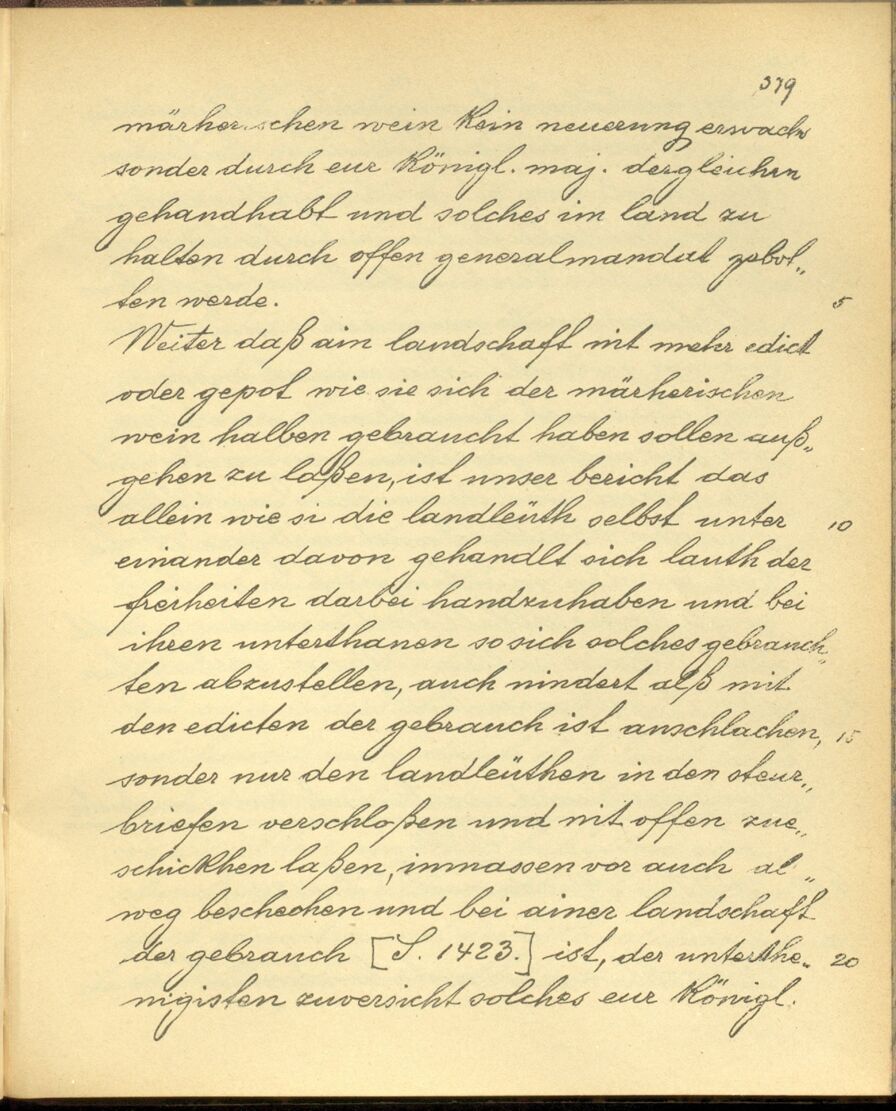 379
märherischen wein kein neuerung erwachs
sonder durch eur Königl. maj. dergleichen
gehandhabt und solches im land zu
halten durch offen generalmandat gebot„
ten werde. 5
Weiter daß ain landschaft nit mehr edict
oder gepot wie sie sich der märherischen
wein halben gebraucht haben sollen auß„
gehen zu laßen, ist unser bericht das
allein wie si die landleüth selbst unter 10
einander davon gehandlt sich lauth der
freiheiten darbei handzuhaben und bei
ihren unterthanen so sich solches gebrauch„
ten abzustellen, auch nindert alß mit
den edicten der gebrauch ist anschlachen, 15
sonder nur den landleüthen in den steur„
briefen verschloßen und nit offen zue„
schickhen laßen, inmassen vor auch al„
weg beschechen und bei ainer landschaft
der gebrauch [S. 1423.] ist, der unterthe„ 20
nigisten zuversicht solches eur Königl.